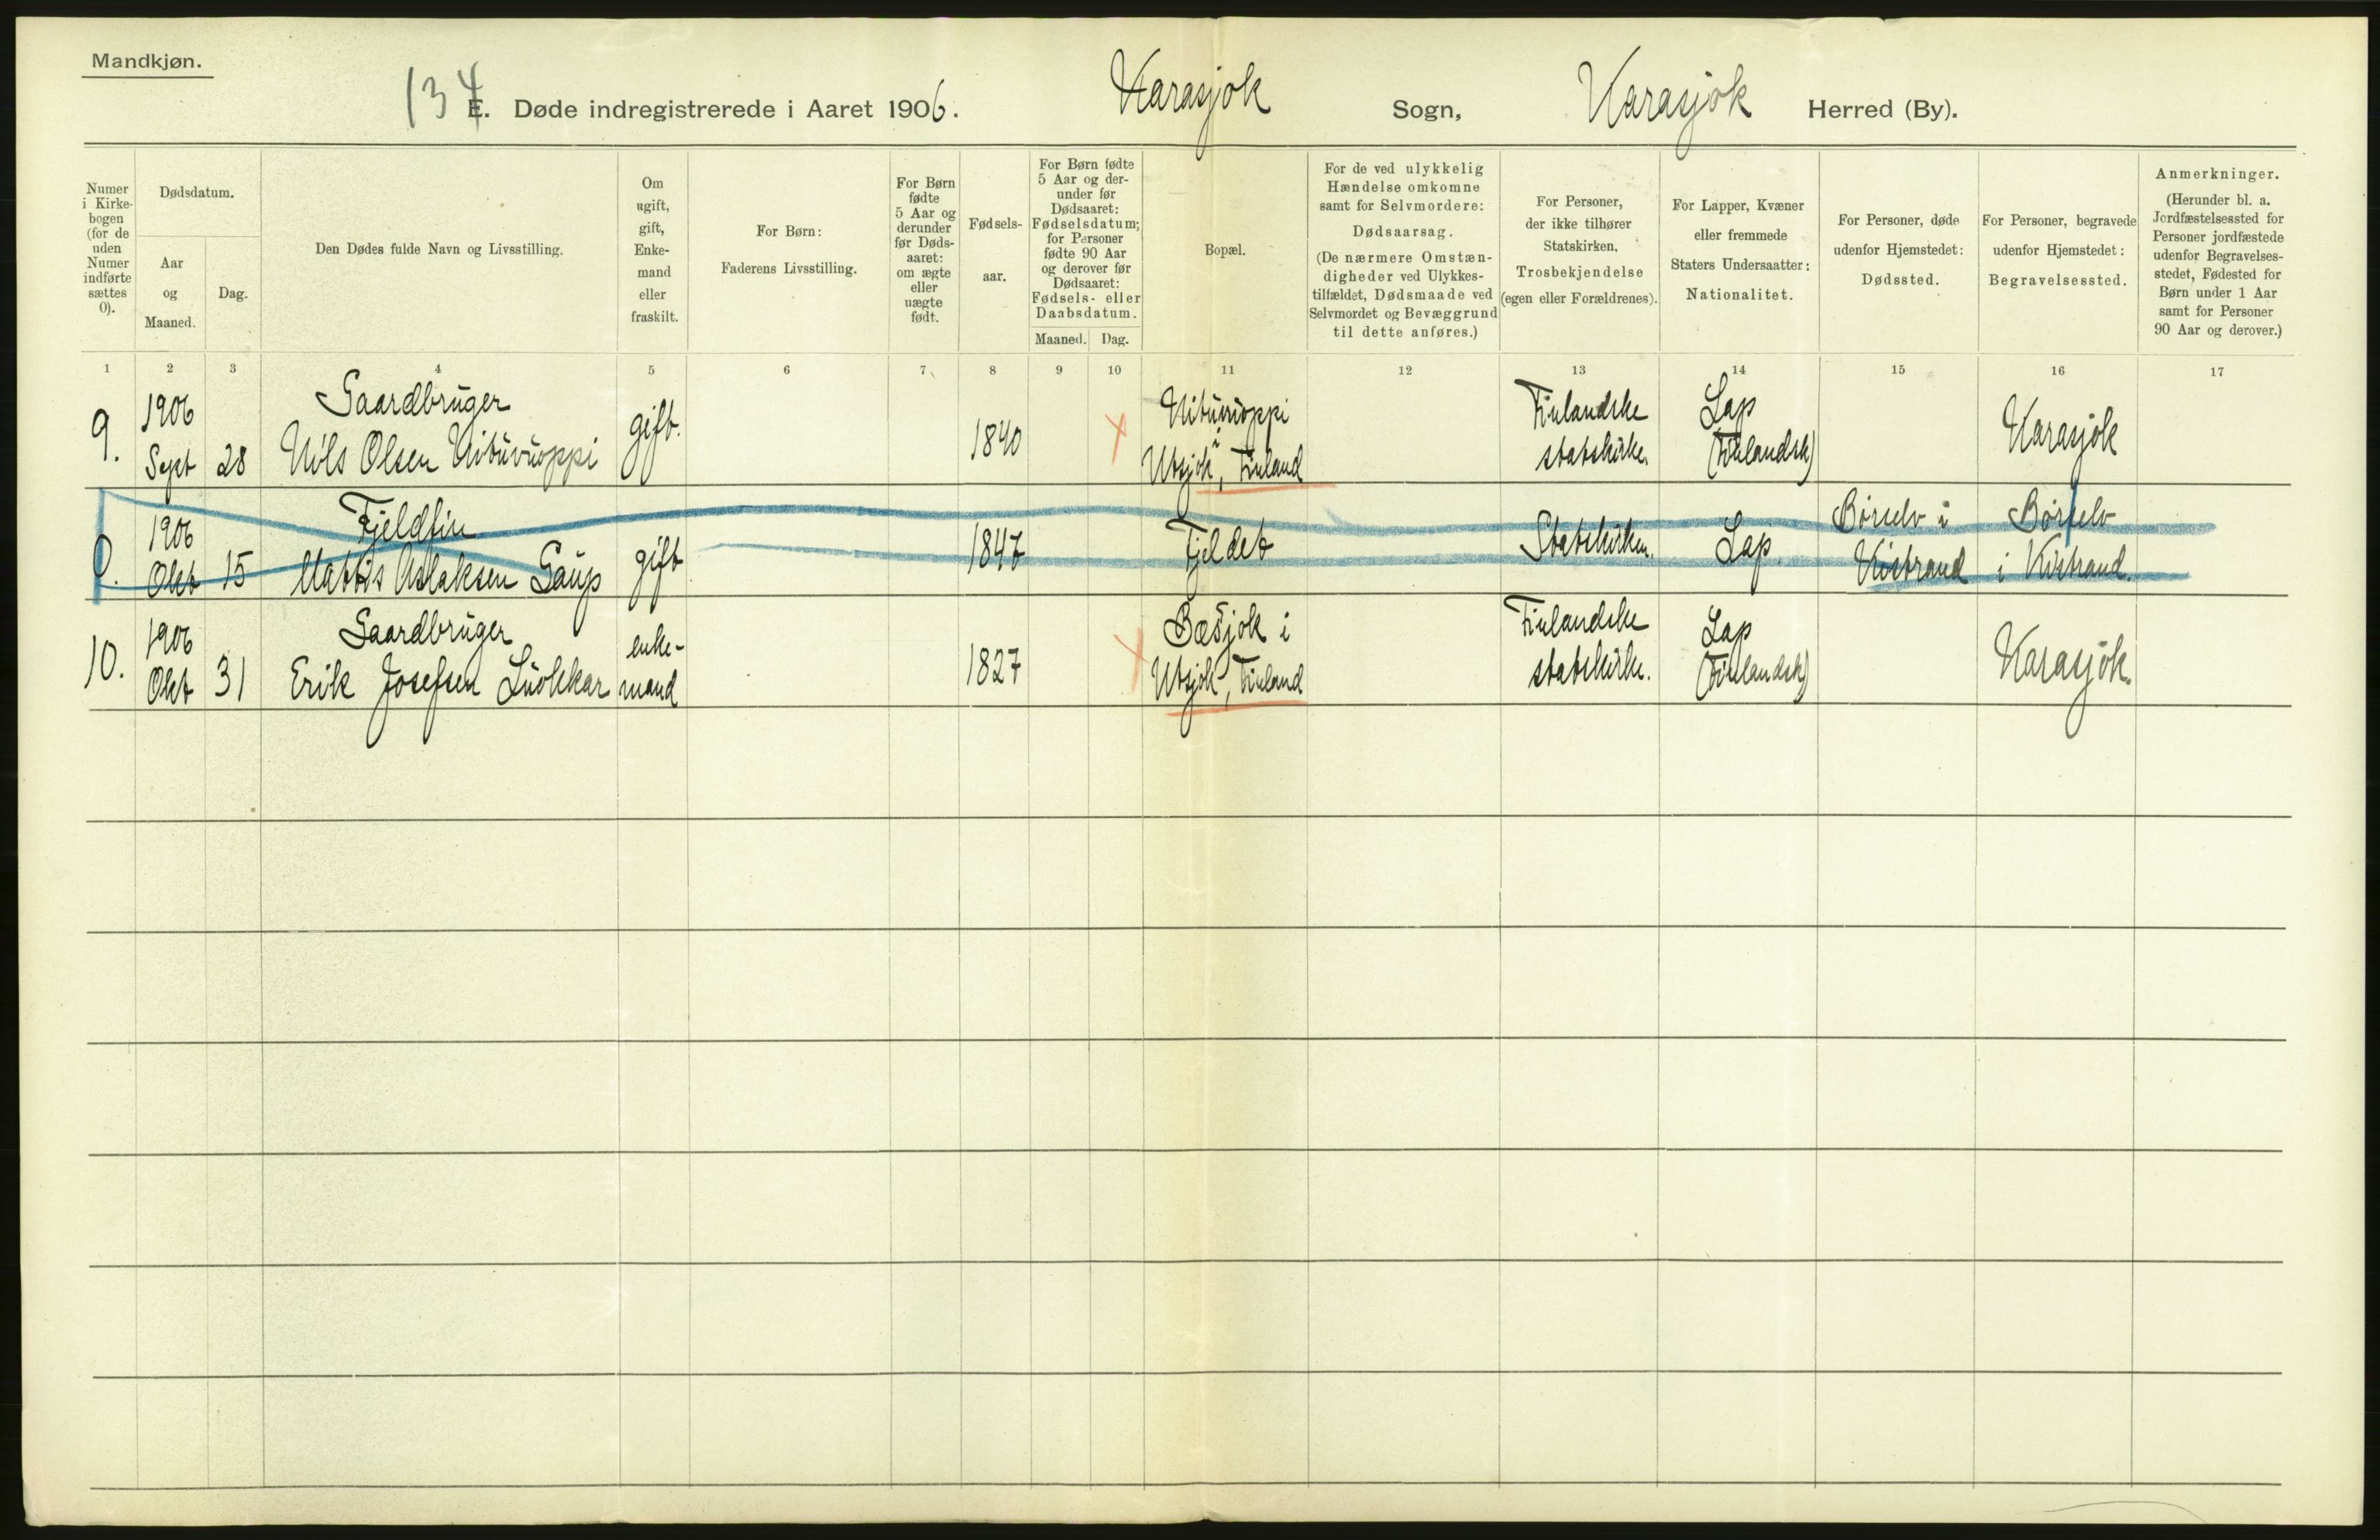 Mandkjøn.
134
E. Døde indregistrerede i Aaret 1906. Karasjok Sogn, Karasjok Herred (By).
Numer
i Kirke-
bogen
(for de
uden
Numer
indførte
sættes
0).
Dødsdatum.
Aar
og
Maaned.
Dag.
Den Dødes fulde Navn og Livsstilling.
Om
ugift,
gift,
Enke-
mand
eller
fraskilt.
For Børn:
Faderens Livsstilling.
For Børn
fødte
5 Aar og
derunder
før Døds-
aaret:
om ægte
eller
uægte
født.
Fødsels-
aar.
For Børn fødte
5 Aar og der-
under før
Dødsaaret:
Fødselsdatum;
for Personer
fødte 90 Aar
og derover før
Dødsaaret:
Fødsels- eller
Daabsdatum.
Maaned. Dag.
Bopæl.
For de ved ulykkelig
Hændelse omkomne
samt for Selvmordere:
Dødsaarsag.
(De nærmere Omstæn-
digheder ved Ulykkes-
tilfældet, Dødsmaade ved
Selvmordet og Bevæggrund
til dette anføres.)
For Personer,
der ikke tilhører
Statskirken.
Trosbekjendelse
(egen eller Forældrenes).
For Lapper, Kvæner
eller fremmede
Staters Undersaatter:
Nationalitet.
For Personer, døde
udenfor Hjemstedet:
Dødssted.
For Personer, begravede
udenfor Hjemstedet:
Begravelsessted.
Anmerkninger.
(Herunder bl. a.
Jordfæstelsessted for
Personer jordfæstede
udenfor Begravelses-
stedet, Fødested for
Børn under 1 Aar
samt for Personer
90 Aar og derover.)
1 2 3 4 5 6 7 8 9 10 11 12 13 14 15 16 17
9.
1906
Sept 28
Gaardbruger
Nils Olsen
gift.
1840
i
Utsjok, Finland
Finlandske
statskirke.
Lap
(Finlandsk)
Karasjok
0.
1906
Okt 15
Fjeldfin
Mattis Aslaksen Gaup
gift
1847
Fjeldet
Statskirken.
Lap.
Børselv i
Kistrand
Børselv
i Kistrand.
10.
1906
Okt 31
Gaardbruger
Erik Josefsen Luokkar
enke-
mand
1827
Bæsjok i
Utsjok, Finland
Finlandske
statskirke.
Lap
(Finlandsk)
Karasjok.